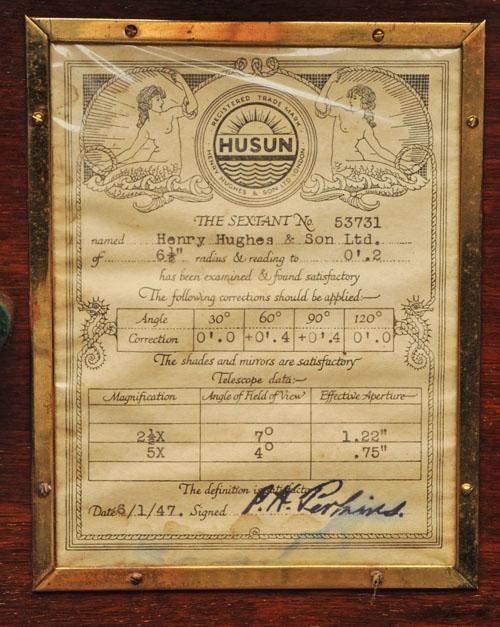 REGISTERED TRADE MARK
HUSUN
HENRY HUGHES & SON LTD LONDON
THE SEXTANT No. 53731
named Henry Hughes & Son Ltd.
of 6½" radius & reading to 0'.2
has been examined & found satisfactory
The following corrections should be applied:—
Angle 30° 60° 90° 120°
Correction 0'.0 +0'.4 +0'.4 0'.0
The shades and mirrors are satisfactory
Telescope data:—
Magnification Angle of Field of View Effective Aperture
2½X 7° 1.22"
5X 4° .75"
The definition is satisfactory
Date 6/1/47. Signed P.A. Perkins.